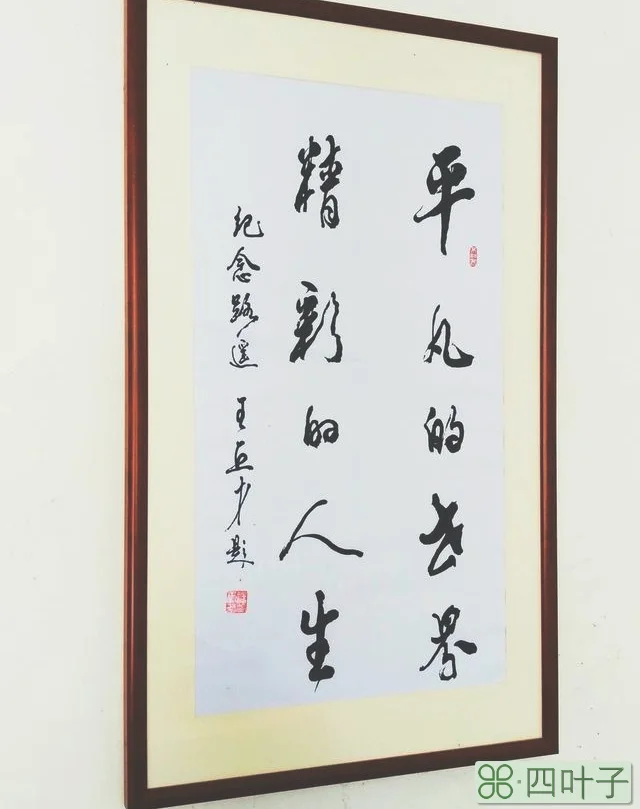 平凡的世界
精彩的人生
纪念路遥 王亚才题
四叶子